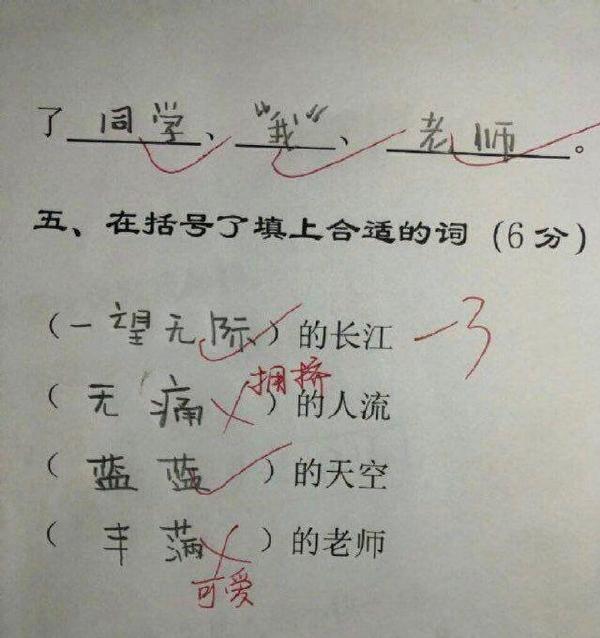 了同学、“我“、老师。
五、在括号了填上合适的词（6分）
（一望无际）的长江 -3
拥挤
（无痛）的人流
（蓝蓝）的天空
（丰满）的老师
可爱